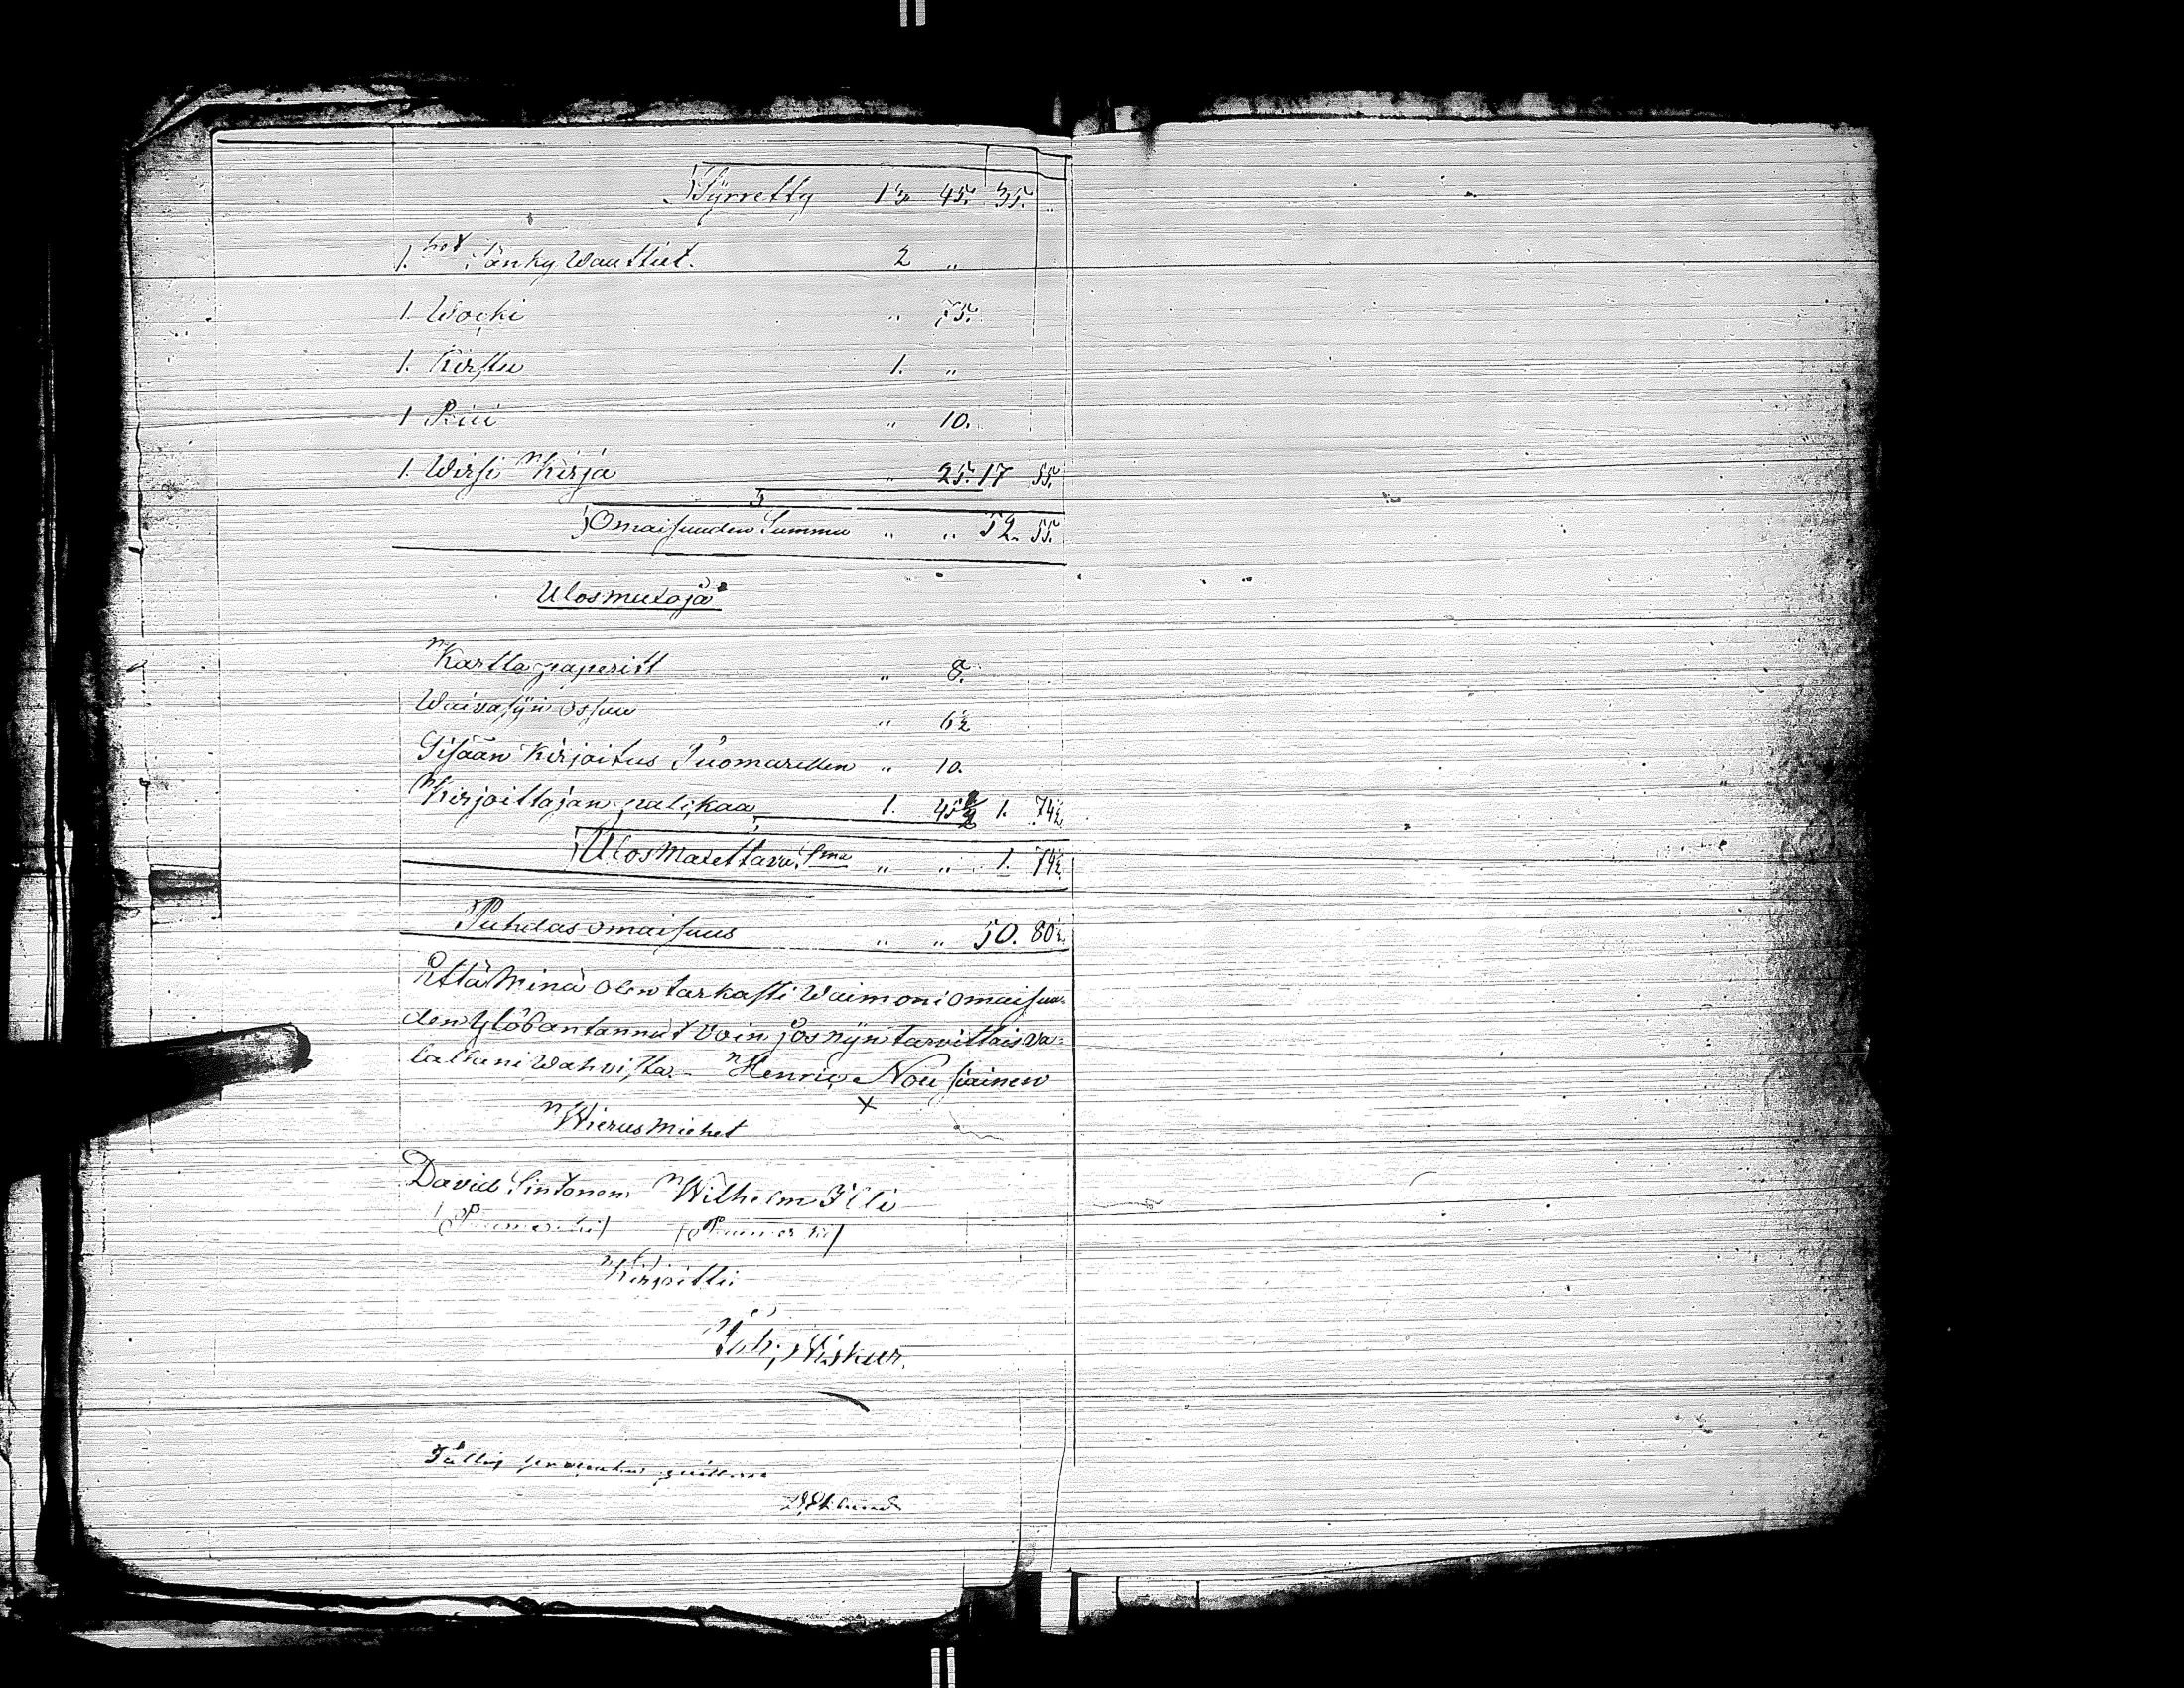 Siirretty 13 45. 35. „
1. hot. Sänky Waattiet. 2 „
1. Wocki „ 75.
1. Kirstu 1. „
1 Piii „ 10.
1. Wirsi Kirja „ 25. 17 55.
Omaisuuden Summa „ „ 52. 55.
Ulosmutoja
Kartta paperitt „ 8.
Waivasijn ossuu „ 6½
Sisään Kirjoitus Tuomarillen „ 10.
Kirjoittajan palkkaa 1. 45 1. 74½
Ulos Maxettava Sma „ „ 1. 74½
Puhdas omaisuus „ „ 50. 80½
Että Minä olen tarkasti Waimoni omaisuu-
den Ylösantannut voin jos nijn tarvittais va-
lallani Wahvistaa. Henric Nousiainen
X
Wierus Miehet
David Sintonen Wilhelm Illi
(Puumerkki) (Puumerkki)
Kirjoitti
Joh. Niskur.